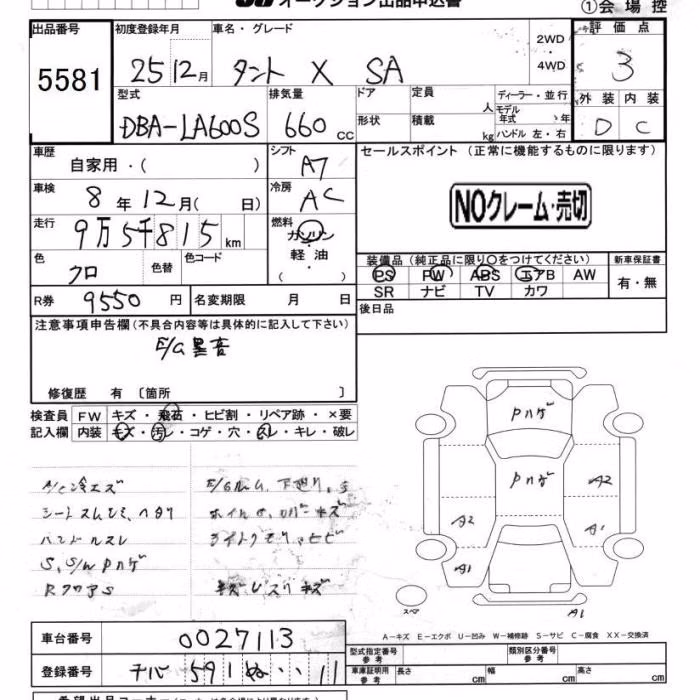 オークション出品申込書
①会場控
出品番号 初度登録年月 車名・グレード 2WD・4WD 評価点
5581 25 12月 タント X SA 3
型式 排気量 ドア 定員 人 ディーラー・並行 外装 内装
DBA-LA600S 660 CC 形状 積載 kg モデル年式 ハンドル 左・右 D C
車歴 シフト セールスポイント (正常に機能するものに限ります)
自家用・( ) A7
車検 冷房
8年12月( 日) AC
NOクレーム・売切
走行 燃料
9万5千815km ガソリン・軽油・( )
色 色替 色コード
クロ
装備品 (純正品に限り○をつけてください) 新車保証書
PS PW ABS エアB AW 有・無
SR ナビ TV カワ
R券 9550円 名変期限 月 日 後日品
注意事項申告欄(不具合内容等は具体的に記入して下さい)
E/G異音
修復歴 有 〔箇所 〕
検査員 FW キズ・飛石・ヒビ割・リペア跡・×要
記入欄 内装 キズ・汚レ・コゲ・穴・スレ・キレ・破レ
A/C冷エズ
ハンドルスレ
S、S/W Pハゲ
Pハゲ
Pハゲ
A2
A2
A1
A1
スペア
A1
A-キズ E-エクボ U-凹み W-補修跡 S-サビ C-腐食 XX-交換済
車台番号 0027113
登録番号 チバ 591 ぬ・・11
型式指定番号 参考 類別区分番号 参考
車庫証明用 参考 長さ cm 幅 cm 高さ cm